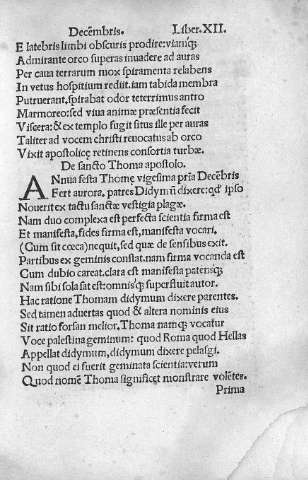 Decēmbris. Liber.XII.
E latebris limbi obscuris prodire:viamqꝫ
Admirante orco superas inuadere ad auras
Per caua terrarum mox spiramenta relabens
In vetus hospitium rediit.iam tabida membra
Putruerant,spirabat odor teterrimus antro
Marmoreo:sed viua animæ præsentia fecit
Viscera:& ex templo fugit situs ille per auras
Taliter ad vocem christi reuocatus ab orco
Vixit apostolicæ retinens consortia turbæ.
De sancto Thoma apostolo.
ANnua festa Thomę vigesima pria Decēbris
Fert aurora, patres Didymū dixere:qđ ipso
Nouerit ex tactu sanctæ vestigia plagæ.
Nam duo complexa est perfecta scientia firma est
Et manifesta,fides firma est,manifesta vocari,
(Cum sit cœca)nequit,sed quæ de sensibus exit.
Partibus ex geminis constat.nam firma vocanda est
Cum dubio careat.clara est manifesta patensqꝫ
Nam sibi sola sat est:omnisqꝫ superfluit autor.
Hac ratione Thomam didymum dixere parentes.
Sed tamen aduertas quod & altera nominis eius
Sit ratio forsan melior, Thoma namqꝫ vocatur
Voce palestina geminum: quod Roma quod Hellas
Appellat didymum,didymum dixere pelasgi.
Non quod ei fuerit geminata scientia:verum
Quod nomē Thoma significet monstrare volētes.
Prima